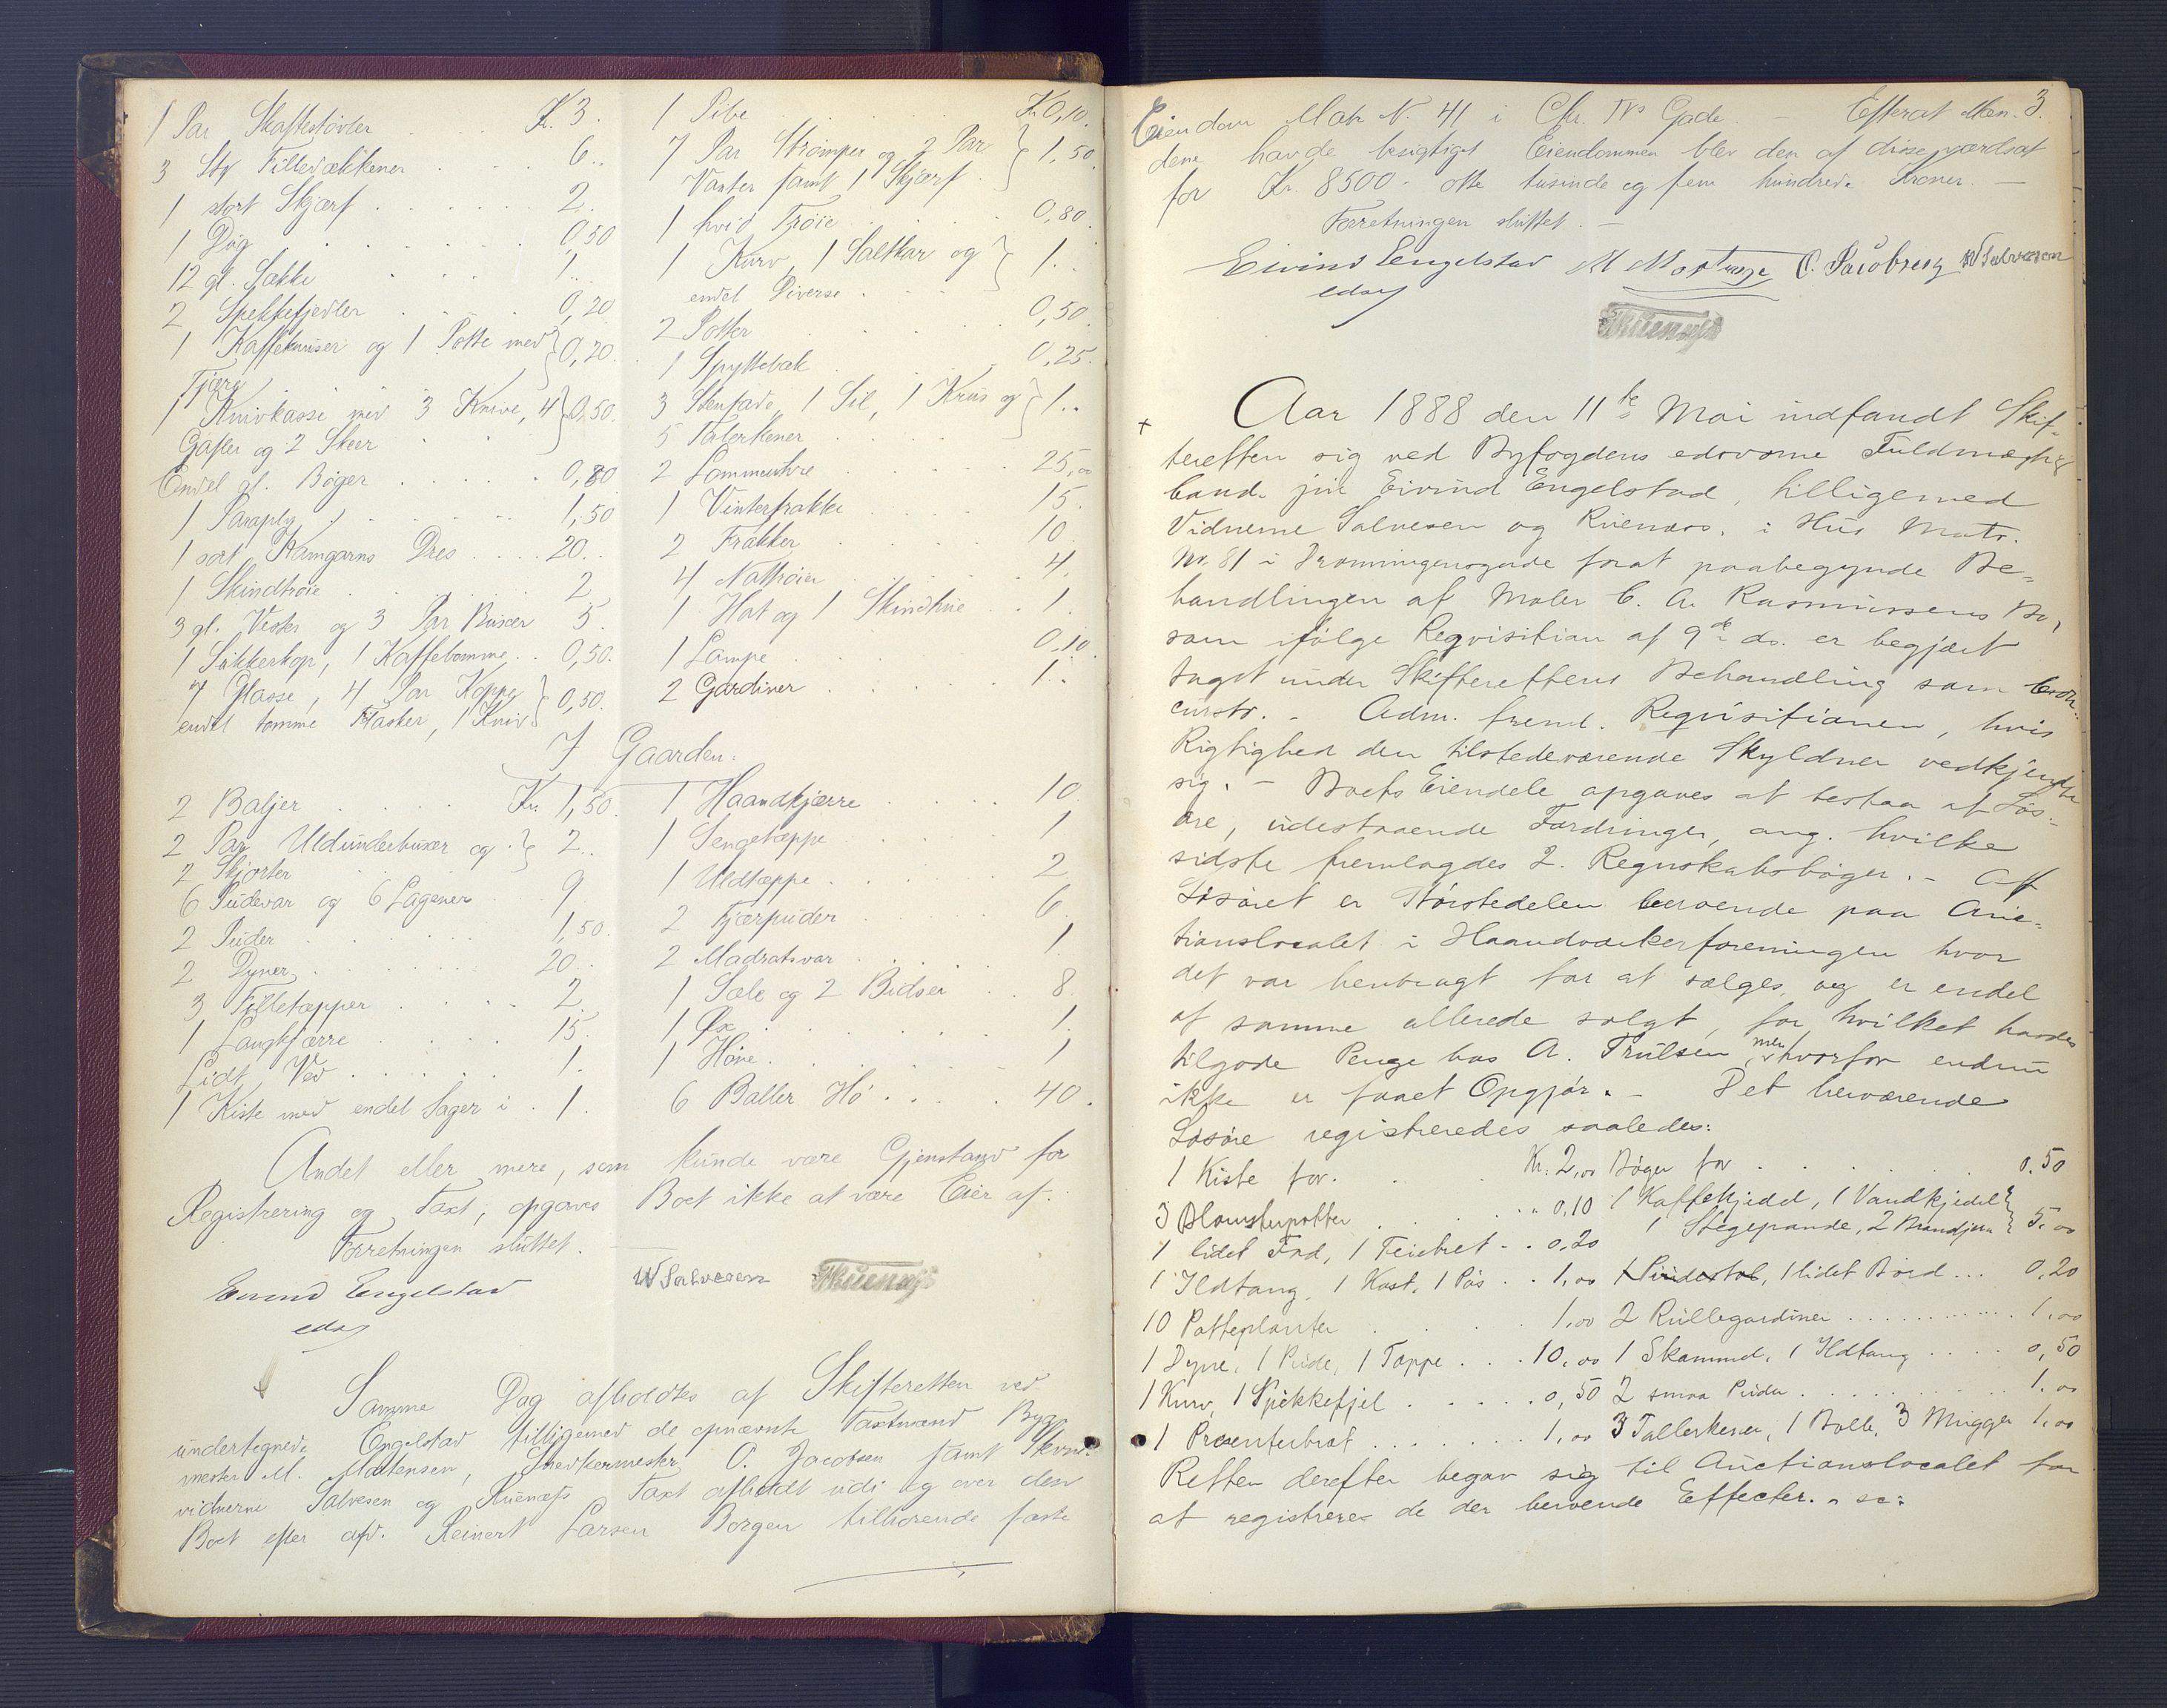 1 Par Skaftestøvler . . . Kr. 3.
3 Stk Filleræékkener . . . 6..
1 stort Skjærf . . . 2.
1 Dög . . . 0,50
12 gl. Sække . . . 1..
2 Spekkefjedler . . . 0,20
1 Kaffekruser og 1 Potte med } 0,20.
Tjære
1 Knivkasse med 3 Knive, 4 } 0,50.
Gafler og 2 Skeer
Endel gl. Bøger . . . 0,80
1 Paraply . . . 1,50
1 sort Kamgarns Dres . . . 20..
1 Skindtrøie . . . 2
3 gl. Vester og 3 Par Buxer 5.
1 Sukkerkop, 1 Kaffebomme . . 0,50.
7 Glasse, 4 Par Koppe } 0,50.
endel tomme Flasker, 1 Kniv
1 Pibe . . . Kr 0,10.
7 Par Strømper og 2 Par } 1,50.
Vanter samt 1 Skjærf .
1 hvid Trøie . . . 0,80.
1 Kurv, 1 Saltkar og } 1..
endel Diverse .
2 Potter . . . 0,50.
1 Spyttebak . . . 0,25.
3 Stenfade, 1 Sil, 1 Krus og } 1..
5 Talerkener . . .
2 Lommeuhre . . . 25,00
1 Vinterfrakke . . . 15.
2 Frakker . . . 10
4 Nattrøier . . . 4.
1 Hat og 1 Skindhue . . 1.
1 Lampe . . . 0,10.
2 Gardiner . . . 1..
I Gaarden.
2 Baljer . . . Kr. 1,50.
2 Par Uldunderbuxer og } 2..
2 Skjorter
6 Pudevar og 6 Lagener . . 9.
2 Puder . . . 1,50.
2 Dyner . . . 20..
3 Filletæpper . . . 2.
1 Langkjærre . . . 15.
Lidt Ved . . . 1.
1 Kiste med endel Sager i . 1.
1 Haandkjærre . . . 10.
1 Sengetæppe . . . 1
1 Uldtæppe . . . 2.
2 Fjærpuder . . . 6.
2 Madratsvar . . . 1
1 Sæle og 2 Bidsel . . 8.
1 Øx . . . 1.
1 Høne . . . 1
6 Baller Hø . . . 40.
Andet eller mere, som kunde være Gjenstand for
Registrering og Taxt, opgaves Boet ikke at være Eier af.
Forretningen sluttet.
Eivind Engelstad W Salvesen Kuenæs
edsv
Samme Dag afholdtes af Skifteretten ved
undertegnede Engelstad tilligemed de opnævnte Taxtmænd Byg-
mester M. Mortensen, Snedkermester O. Jacobsen samt Skifte-
vidnerne Salvesen og Kuenæs Taxt afholdt udi og over den
Boet efter afd. Reinert Larsen Borgen tilhørende faste
3.
Eiendom Matr N. 41 i Chr. IVs Gade. – Efterat Mæn-
dene havde besigtiget Eiendommen blev den af disse værdsat
for Kr. 8500 – otte tusinde og fem hundrede Kroner. –
Forretningen sluttet. –
Eivind Engelstad M Mortensen O. Jacobsen W Salvesen
edsv
Kuenæs
+ Aar 1888 den 11te Mai indfandt Skif-
teretten sig ved Byfogdens edsvorne Fuldmægtig
cand. jur Eivind Engelstad, tilligemed
Vidnerne Salvesen og Kuenæs. i Hus Matr.
Nr. 81 i Dronningensgade forat paabegynde Be-
handlingen af Maler C. A. Rasmussens Bo,
som ifølge Reqvisition af 9de ds. er begjært
taget under Skifterettens Behandling som Con-
curstr. . Adm. freml. Reqvisitionen, hvis
Rigtighed den tilstedeværende Skyldner vedkjendte
sig. – Boets Eiendele opgaves at bestaa af Løs-
øre, udestaaende Fordringer, ang. hvilke
sidste fremlagdes 2. Regnskabsbøger. – Af
Løsøret er Størstedelen beroende paa Auc-
tionslocalet i Haandværkerforeningen hvor
det var henbragt for at sælges, og er endel
af samme allerede solgt, for hvilket haves
tilgode Penge hos A. Trulsen, men hvorfor endnu
ikke er faaet Opgjør. – Det herværende
Løsøre registreredes saaledes:
1 Kiste for . . . Kr. 2,00 Bøger for . . . 0.50
3 Blomsterpotter . . . " 0,10 1 Kaffekjedel, 1 Vandkjedel }
1 lidet Fad, 1 Feiebret . . 0,20 1 Stegepande, 2 Brandjern } 5.00
1 Ildtang, 1 Kost, 1 Pøs . . 1,00 1 Pindestol, 1 lidet Bord . . . 0,20
10 Potteplanter . . . 1,00 2 Rullegardiner . . . 1,00
1 Dyne, 1 Pude, 1 Tæppe . . . 10,00 1 Skammel, 1 Ildtang . . . 0,50
1 Kurv, 1 Spækkefjel . . . 0,50 2 smaa Puder . . . 1.00
1 Presenterbrat . . . 1,00 3 Tallerkener, 1 Bolle, 3 Mugger 1,00
Retten derefter begav sig til Auctionslocalet for
at registrere de der beroende Effecter. " sc: